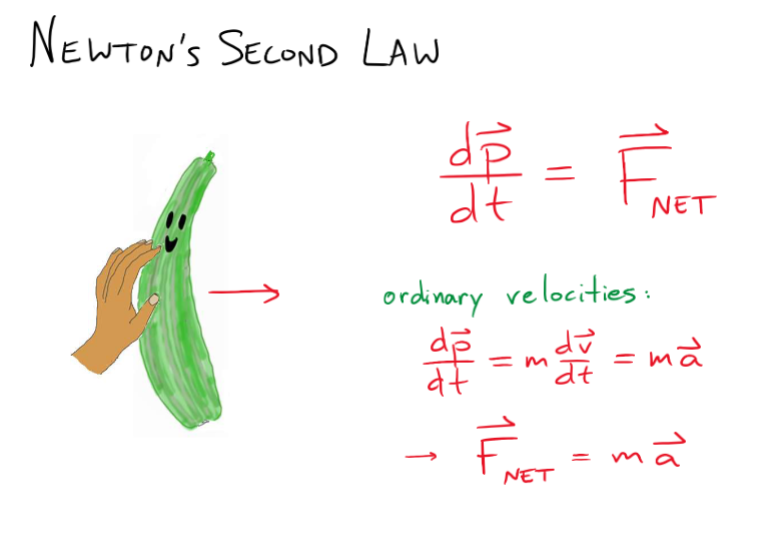 NEWTON'S SECOND LAW
dp⃗/dt = F⃗_NET
ordinary velocities:
dp⃗/dt = m dv⃗/dt = ma⃗
→ F⃗_NET = ma⃗